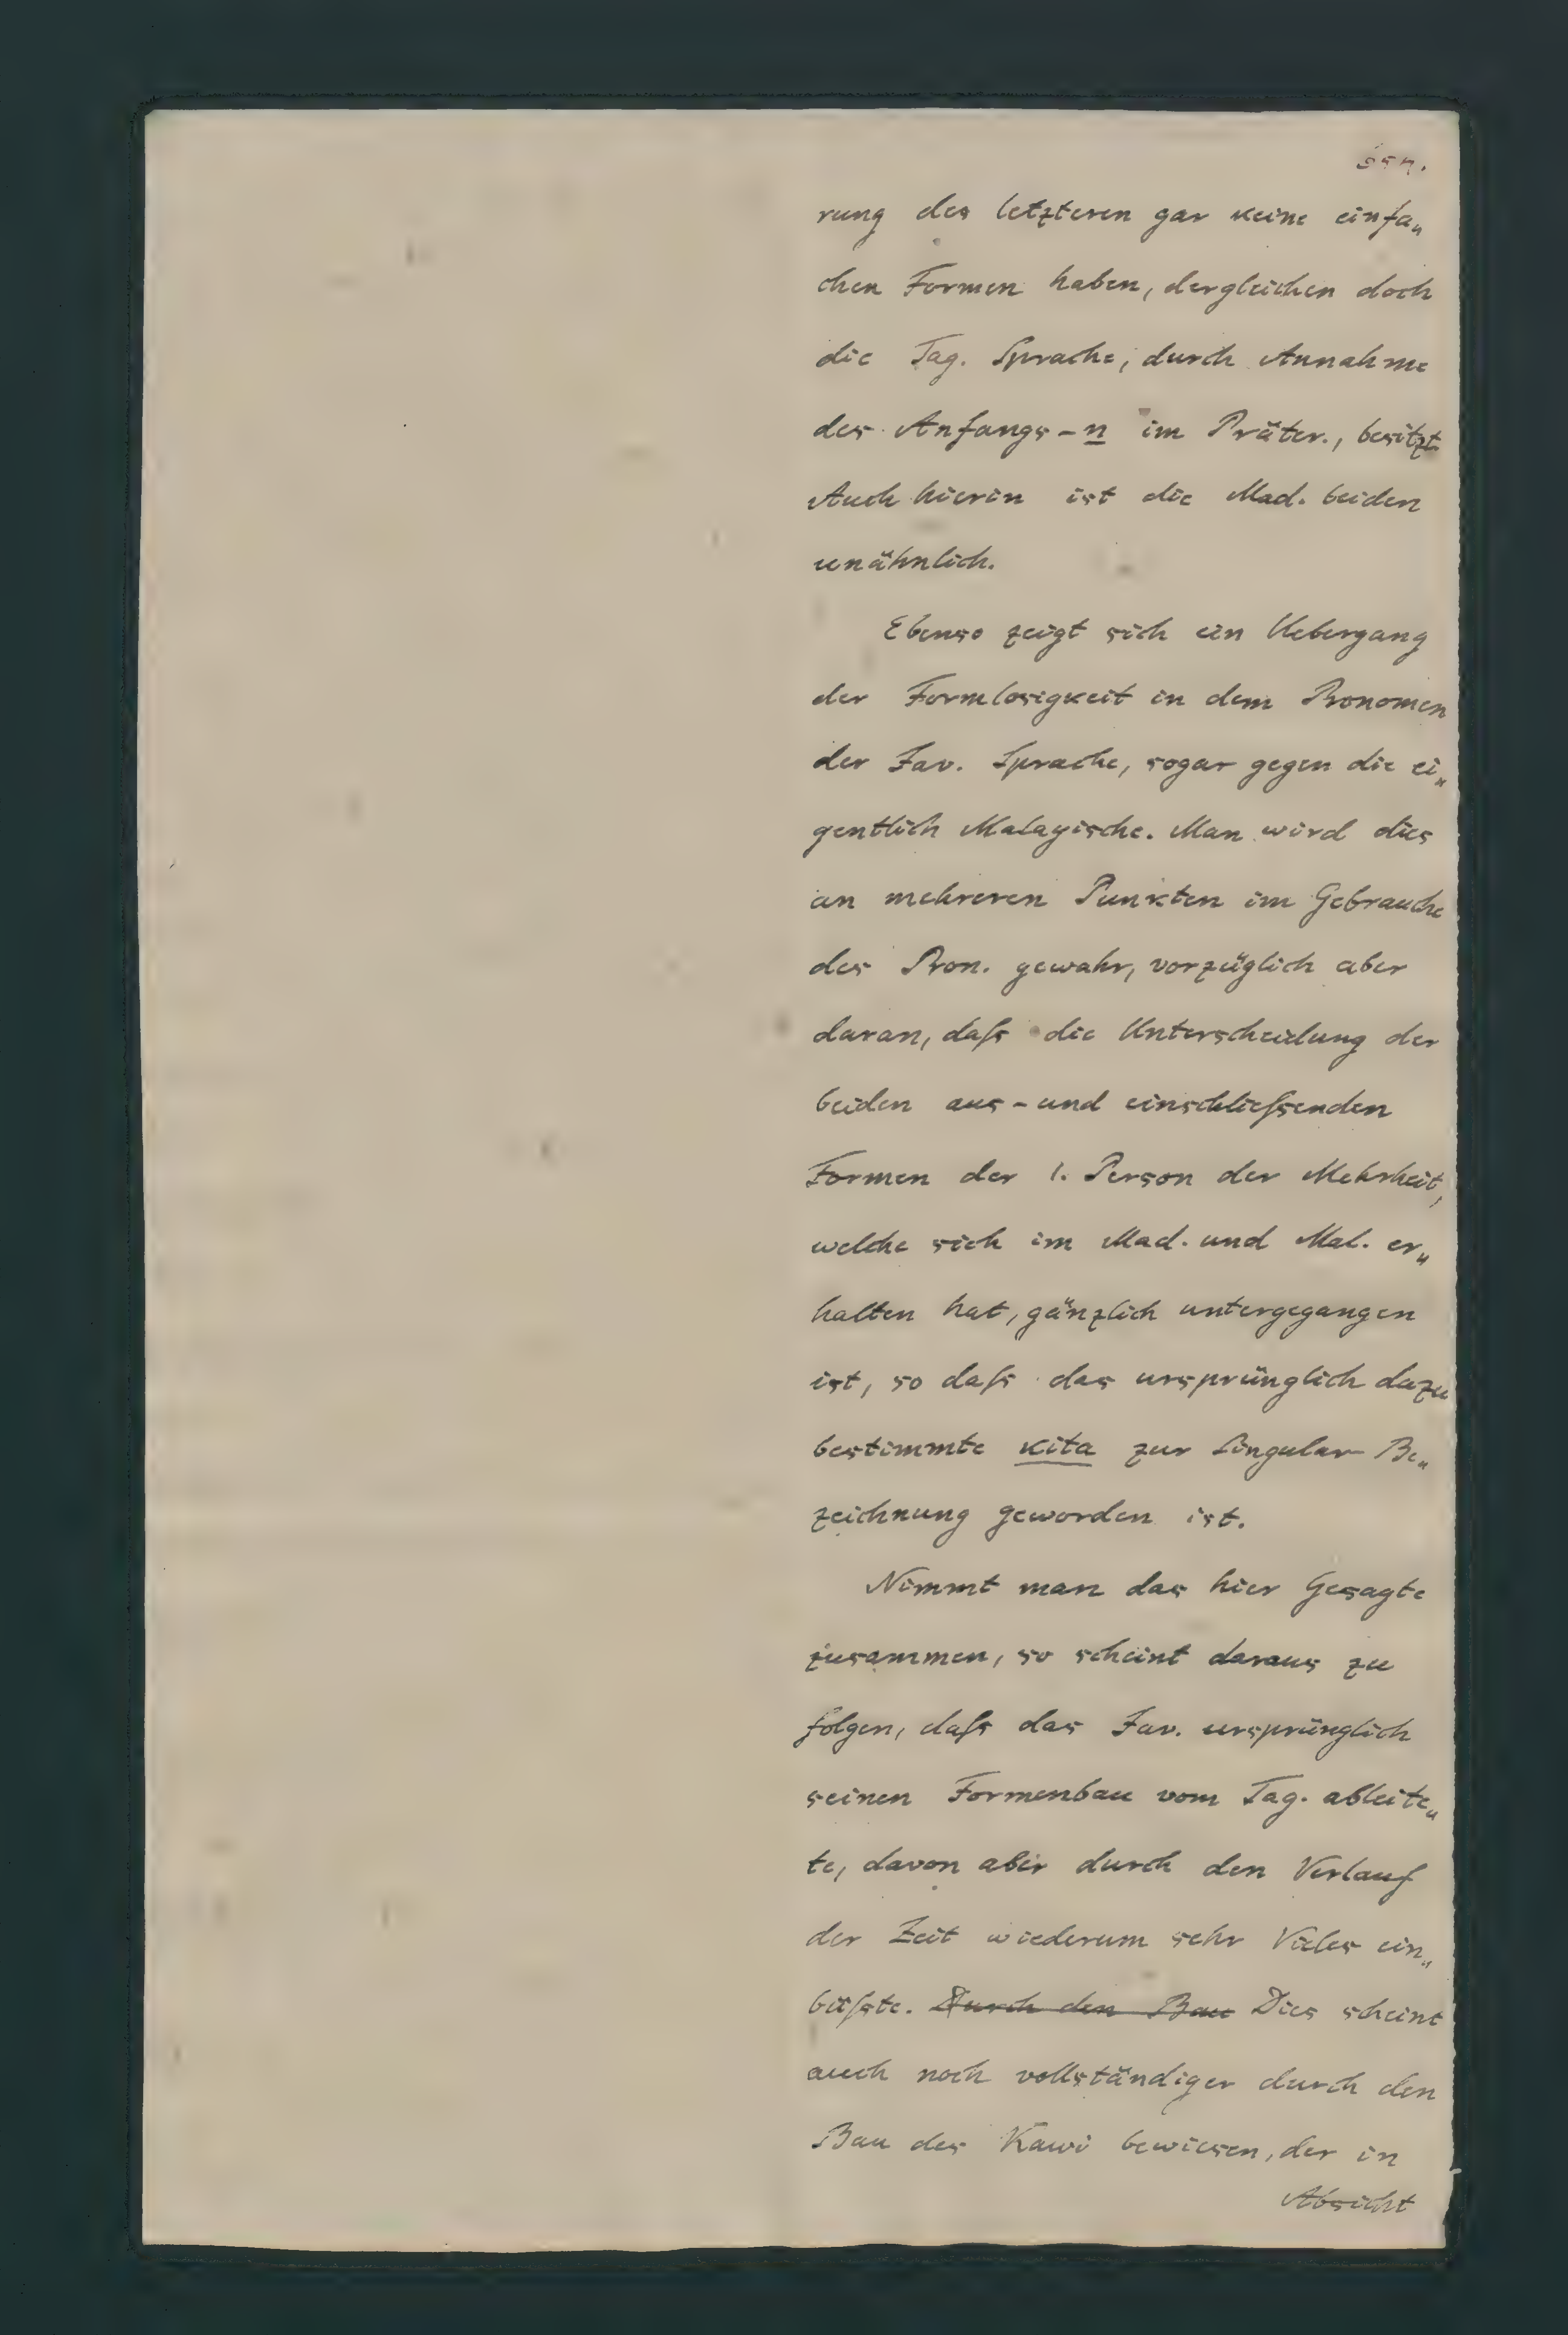 rung des letzteren gar keine einfa„
chen Formen haben, dergleichen doch
die Tag. Sprache, durch Annahme
des Anfangs-n im Präter., besitzt
Auch hierin ist die Mad. beiden
unähnlich.
Ebenso zeigt sich ein Uebergang
der Formlosigkeit in dem Pronomen
der Jav. Sprache, sogar gegen die ei„
gentlich Malayische. Man wird dies
an mehreren Punkten im Gebrauche
des Pron. gewahr, vorzüglich aber
daran, daſs die Unterscheidung der
beiden aus- und einschlieſsenden
Formen der 1. Person der Mehrheit,
welche sich im Mad. und Mal. er„
halten hat, gänzlich untergegangen
ist, so daſs das ursprünglich dazu
bestimmte kita zur Singular Be„
zeichnung geworden ist.
Nimmt man das hier Gesagte
zusammen, so scheint daraus zu
folgen, daſs das Jav. ursprünglich
seinen Formenbau vom Tag. ableite„
te, davon aber durch den Verlauf
der Zeit wiederum sehr Vieles ein„
büſste. Durch den Bau Dies scheint
auch noch vollständiger durch den
Bau des Kawi bewiesen, der in
Absicht